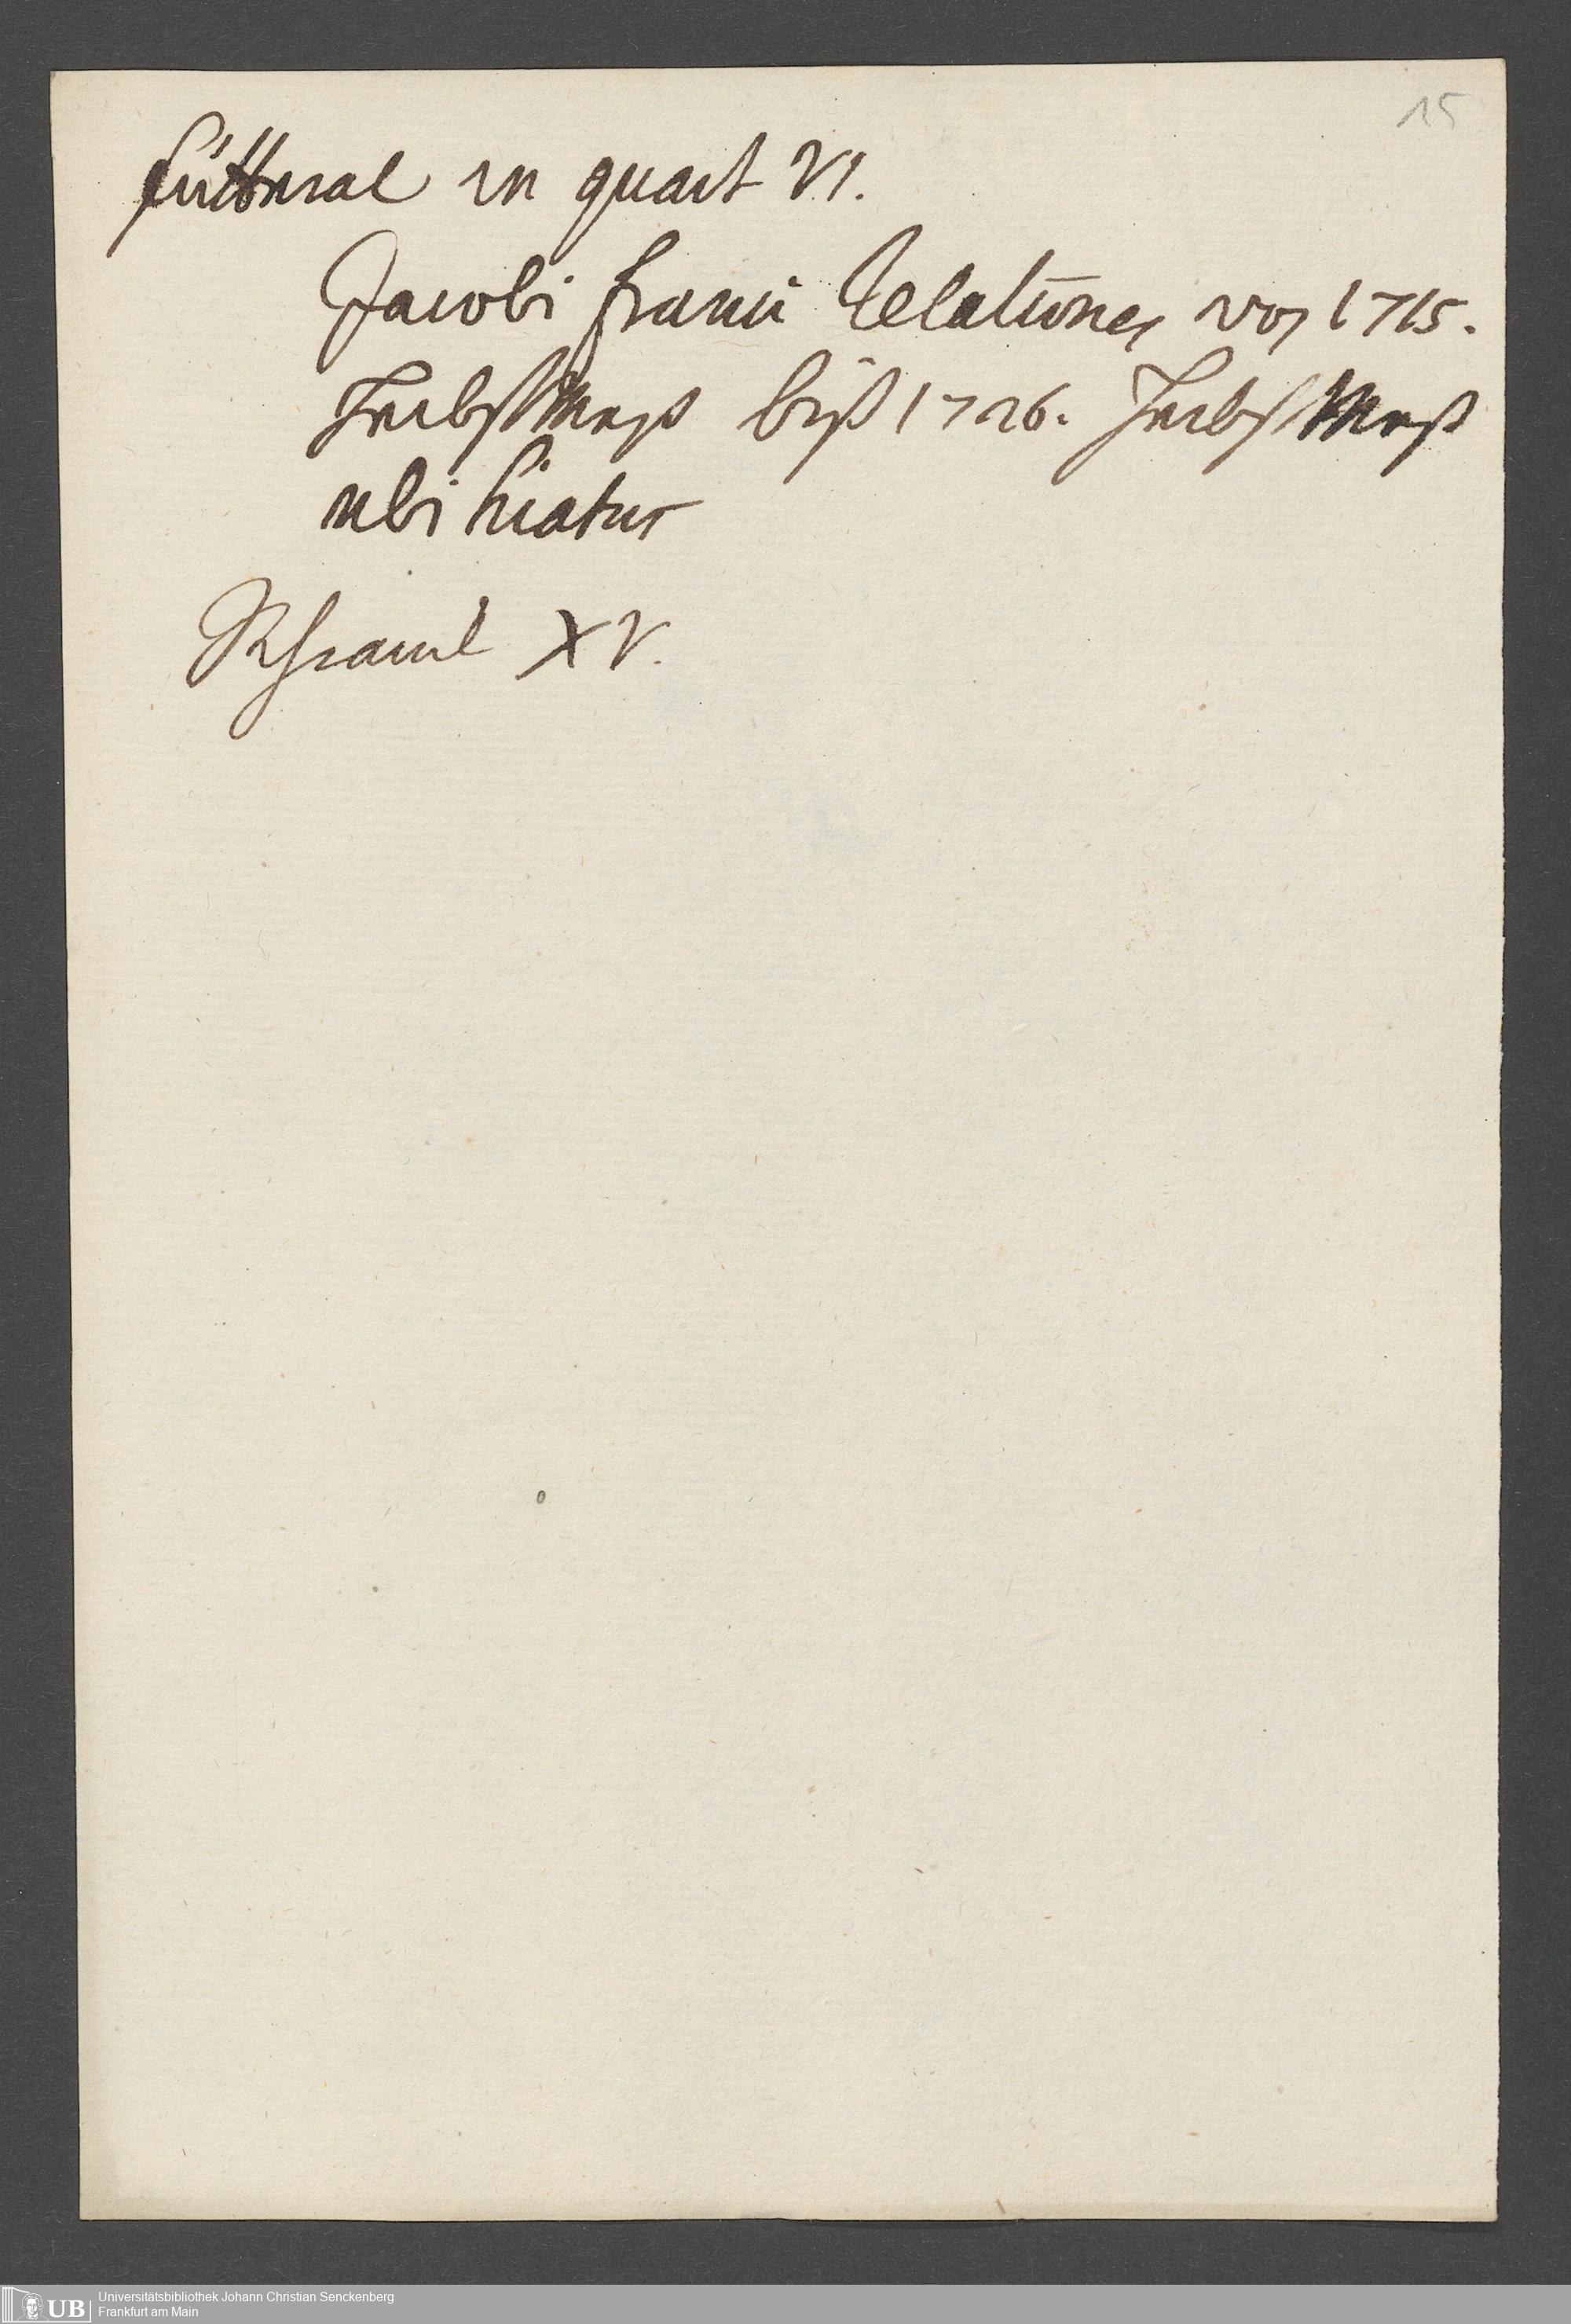 15
Futteral in quart VI.
Jacobi Franci Relationes von 1715.
HerbstMeß biß 1726. HerbstMeß
ubi hiatus
XV.
UB
Universitätsbibliothek Johann Christian Senckenberg
Frankfurt am Main